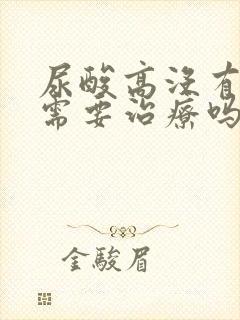 尿酸高没有
需要治疗吗
金駿眉